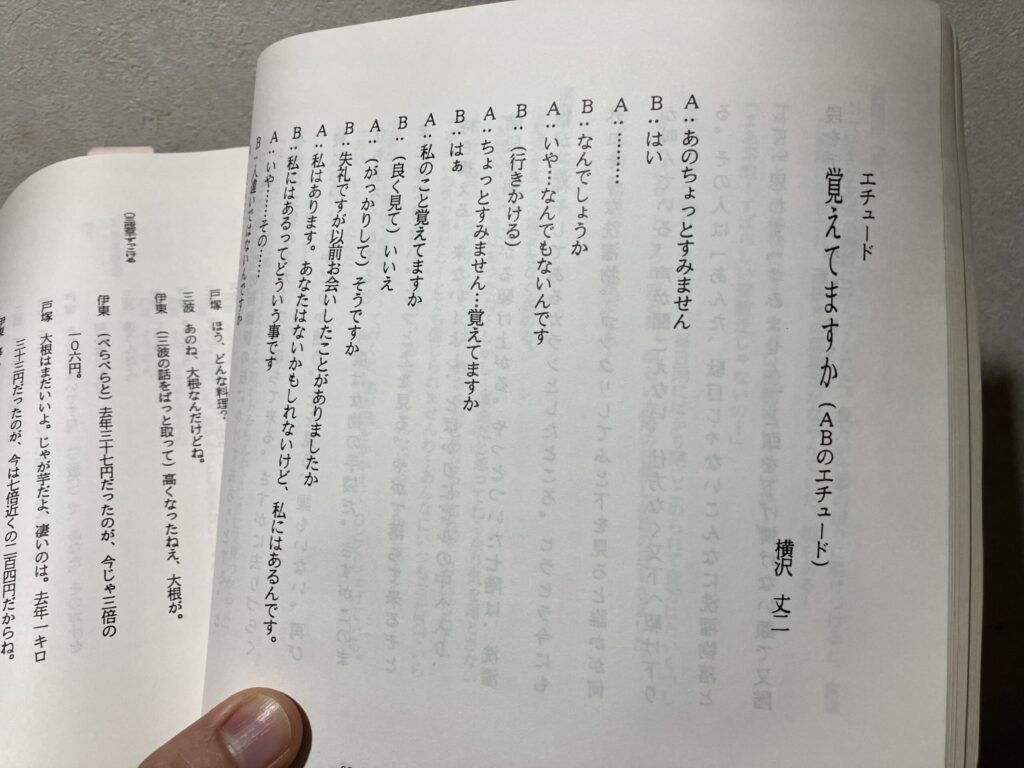 エチュード
覚えてますか（ＡＢのエチュード）
横沢　丈二
Ａ：あのちょっとすみません
Ｂ：はい
Ａ：………
Ｂ：なんでしょうか
Ａ：いや…なんでもないんです
Ｂ：（行きかける）
Ａ：ちょっとすみません…覚えてますか
Ｂ：はぁ
Ａ：私のこと覚えてますか
Ｂ：（良く見て）いいえ
Ａ：（がっかりして）そうですか
Ｂ：失礼ですが以前お会いしたことがありましたか
Ａ：私はあります。あなたはないかもしれないけど、私にはあるんです。
Ｂ：私にはあるってどういう事です
Ａ：いや………その……
戸塚　ほう、どんな料理？
三波　あのね、大根なんだけどね。
伊東　（三波の話をぱっと取って）高くなったねえ、大根が。
伊東　（べらべらと）去年三十七円だったのが、今じゃ三倍の
一〇六円。
戸塚　大根はまだいいよ。じゃが芋だよ、凄いのは。去年一キロ
三十三円だったのが、今は七倍近くの二百四円だからね。